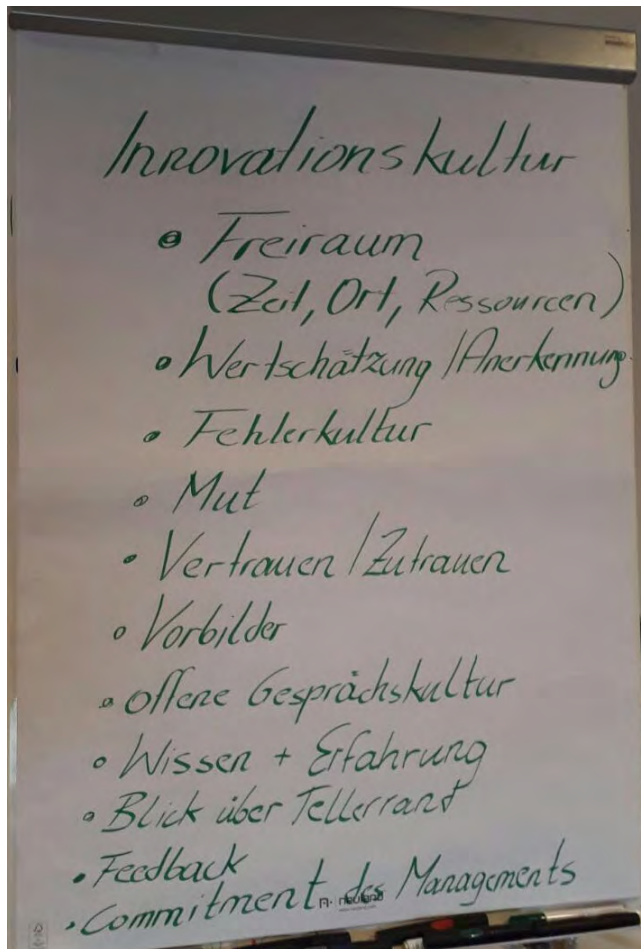 Innovationskultur
• Freiraum
(Zeit, Ort, Ressourcen)
• Wertschätzung / Anerkennung
• Fehlerkultur
• Mut
• Vertrauen / Zutrauen
• Vorbilder
• offene Gesprächskultur
• Wissen + Erfahrung
• Blick über Tellerrand
• Feedback
• Commitment des Managements
neuland